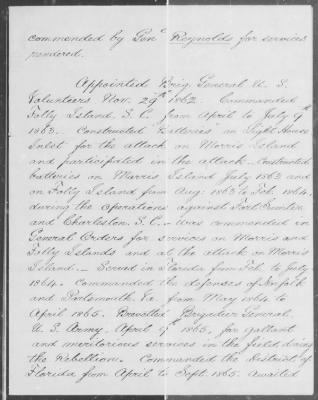 commended by Gen^l Reynolds for services
rendered.
Appointed Brig. General U. S.
Volunteers Nov. 29th 1862. Commanded
Folly Island, S. C. from April to July 9th
1863. Constructed Batteries on Light House
Inlet for the attack on Morris Island
and participated in the attack. Constructed
batteries on Morris Island July 1863 and
on Folly Island from Aug: 1863 to Feb. 1864,
during the operations against Fort Sumter
and Charleston S. C. - Was commended in
General Orders for services on Morris and
Folly Islands and at the attack on Morris
Island. - Served in Florida from Feb. to July
1864. Commanded the defenses of Norfolk
and Portsmouth Va from May 1864 to
April 1865. Brevetted Brigadier General
U. S. Army, April 9th 1865, for gallant
and meritorious services in the field during
the Rebellion. Commanded the district of
Florida from April to Sept. 1865. Awaited